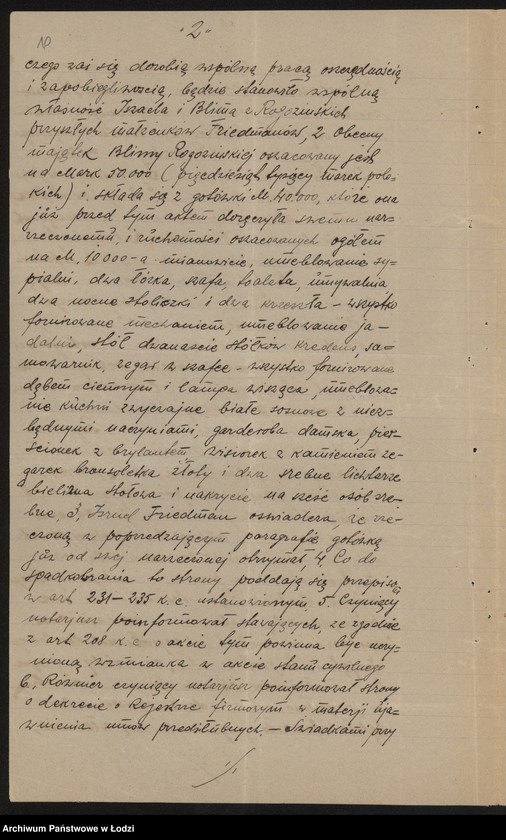 "2"
czego zaś się dorobią wspólną pracą oszczędnością
i zapobiegliwością, będzie stanowiło wspólną
własność Izraela i Blima z Rogozińskich
przyszłych małżonków Friedmanów, 2, Obecny
majątek Blimy Rogozińskiej oszacowany jest
na Marek 50.000 (pięćdziesiąt tysięcy marek pols-
kich) i składa się z gotówki M. 40.000, które ona
już przed tym aktem doręczyła swemu narze-
czonemu, i ruchomości oszacowanych ogółem
na M. 10000-a mianowicie, umeblowanie sy-
pialni, dwa łóżka, szafa, toaleta, umywalnia
dwa nocne stoliczki i dwa krzesła - wszystko
fornirowane umeblowanie ja-
dalni, stół dwanaście stołków kredens, sa-
mowarnik, zegar w szafce - wszystko fornirowane
dębem ciemnym i lampa wisząca, umeblowa-
nie kuchni zwyczajne białe sosnowe z niez-
będnymi naczyniami, garderoba damska, pier-
ścionek z brylantem, wisiorek z kamieniem ze-
garek bransoletka złoty i dwa srebne lichtarze
bielizna stołowa i nakrycie na sześć osób sre-
bne, 3, Izrael Friedman oświadcza, że rze-
czoną w poprzedzającym paragrafie gotówkę
już od swej narzeczonej otrzymał, 4, Co do
spadkobrania to strony poddają się przepisom
w art 231-235 k.c. ustanowionym, 5. Czyniący
notarjusz poinformował stawających, że zgodnie
z art 208 k.c. o akcie tym powinna być uczy-
nioną wzmianka w akcie stanu cywilnego
6, Również czyniący notarjusz poinformował strony
o dekrecie o Rejestrze firmowym w materji uja-
wnienia umów przedślubnych. - Świadkami przy
Archiwum Państwowe w Łodzi